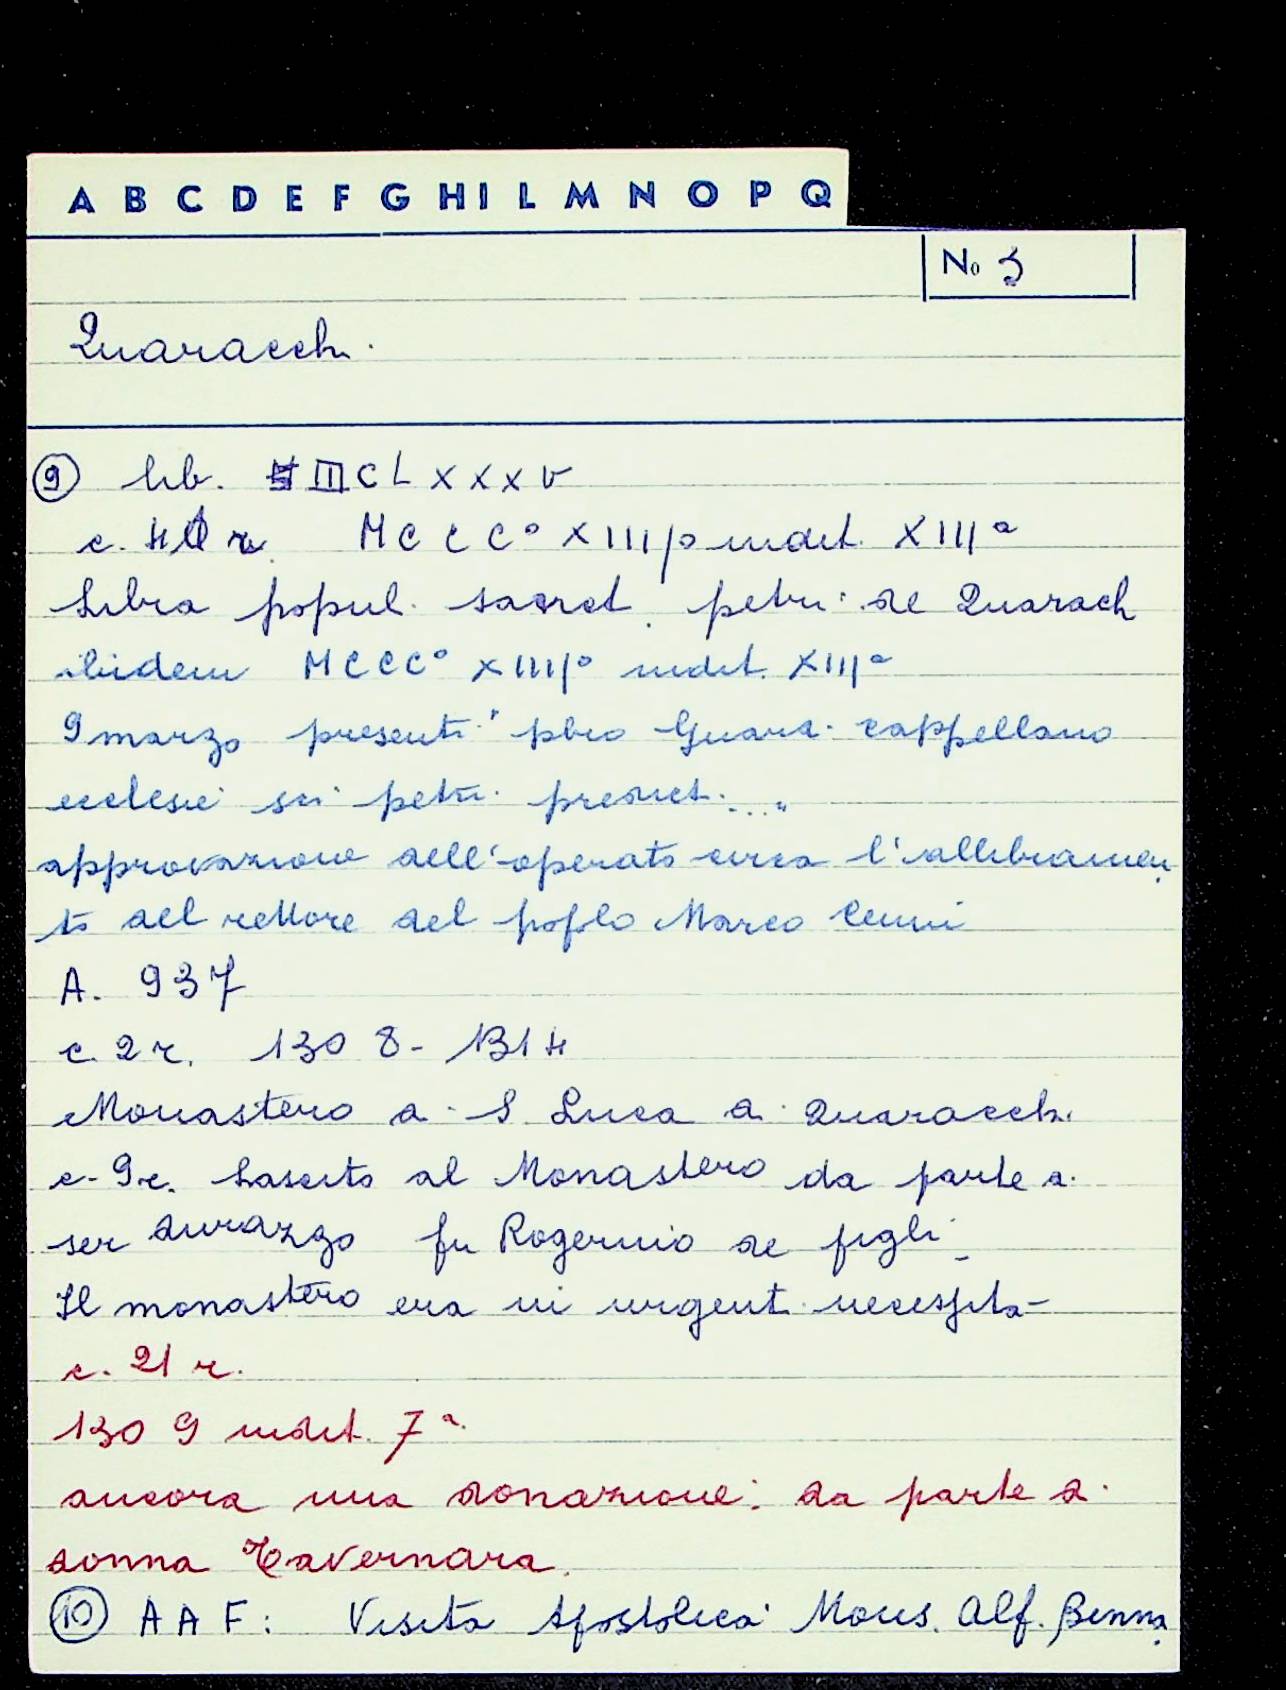 A B C D E F G H I L M N O P Q
No 3
Quaracchi
9 lib. IIICLXXXV
c. 40 r. MCCC° XIIII° indit. XIIIa
Libra popul. sacret. petri de Quarach
ibidem MCCC° XIIII° indit. XIIIa
9 marzo presenti " pbro Guara. cappellano
ecclesie sci petri predict...."
approvazione dell'operato circa l'allibramen
to del rettore del poplo Marco Cenni
A. 937
c. 2 r. 1308-1314
Monastero di S Luca a Quaracchi
c. 9 r. Lascito al Monastero da parte di
ser Durazzo fu Rogerino de figli
Il monastero era in urgenti necessità
c. 21 r.
1309 indit. 7a
ancora una donazione: da parte di
donna Tavernara.
10 AAF: Visita Apostolica Mons. Alf. Binna